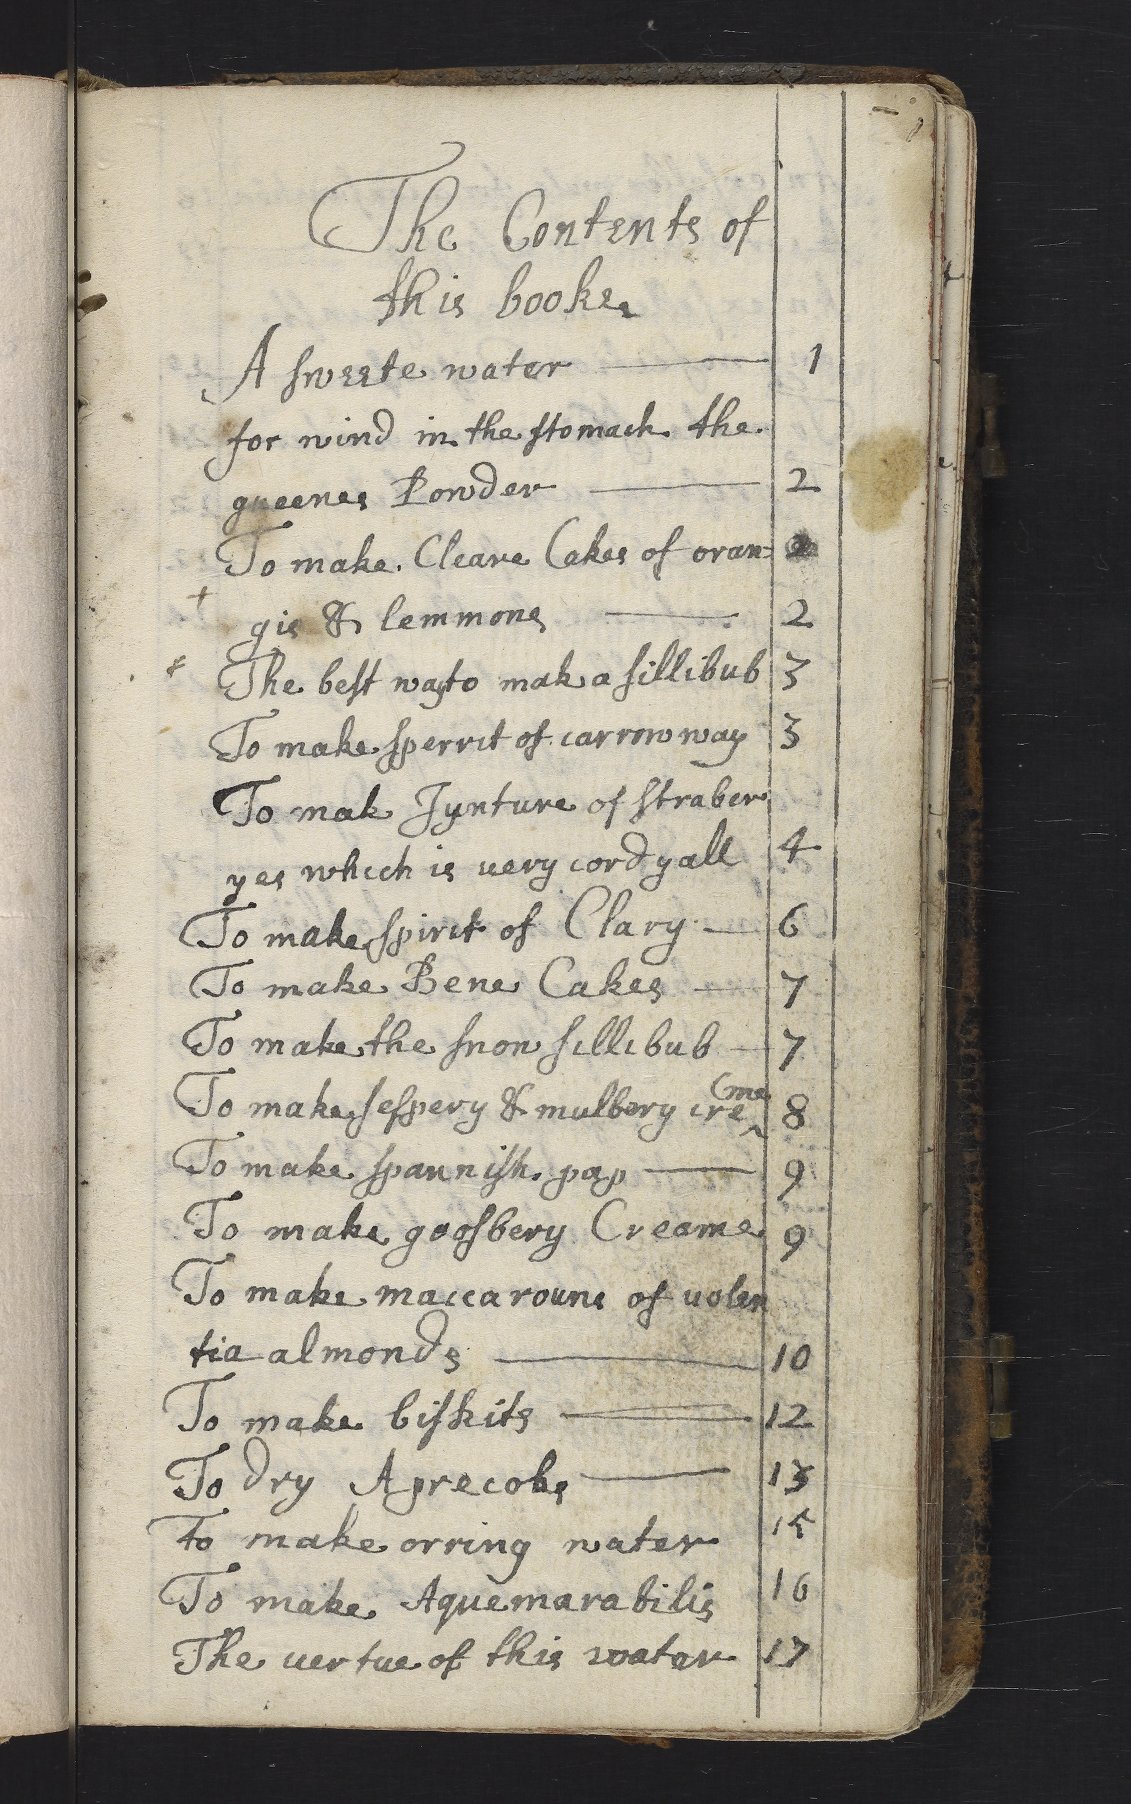 The Contents of
this booke
A sweete water 1
for wind in the stomach the
queenes Powder 2
To make Cleare Cakes of oran=
+ gis & lemmons 2
The best wayto mak a sillibub 3
To make sperrit of carrowway 3
To mak Tynture of straber
yes which is very cordyall 4
To make spirit of Clary 6
To make Bene Cakes 7
To make the snow sillibub 7
To make & mulbery creme 8
To make spannish pap 9
To make goosbery Creame 9
To make maccarouns of uolen
tia almonds 10
To make biskits 12
To dry Aprecoks 13
To make orring water 15
To make Aquemarabilis 16
The uertue of this water 17